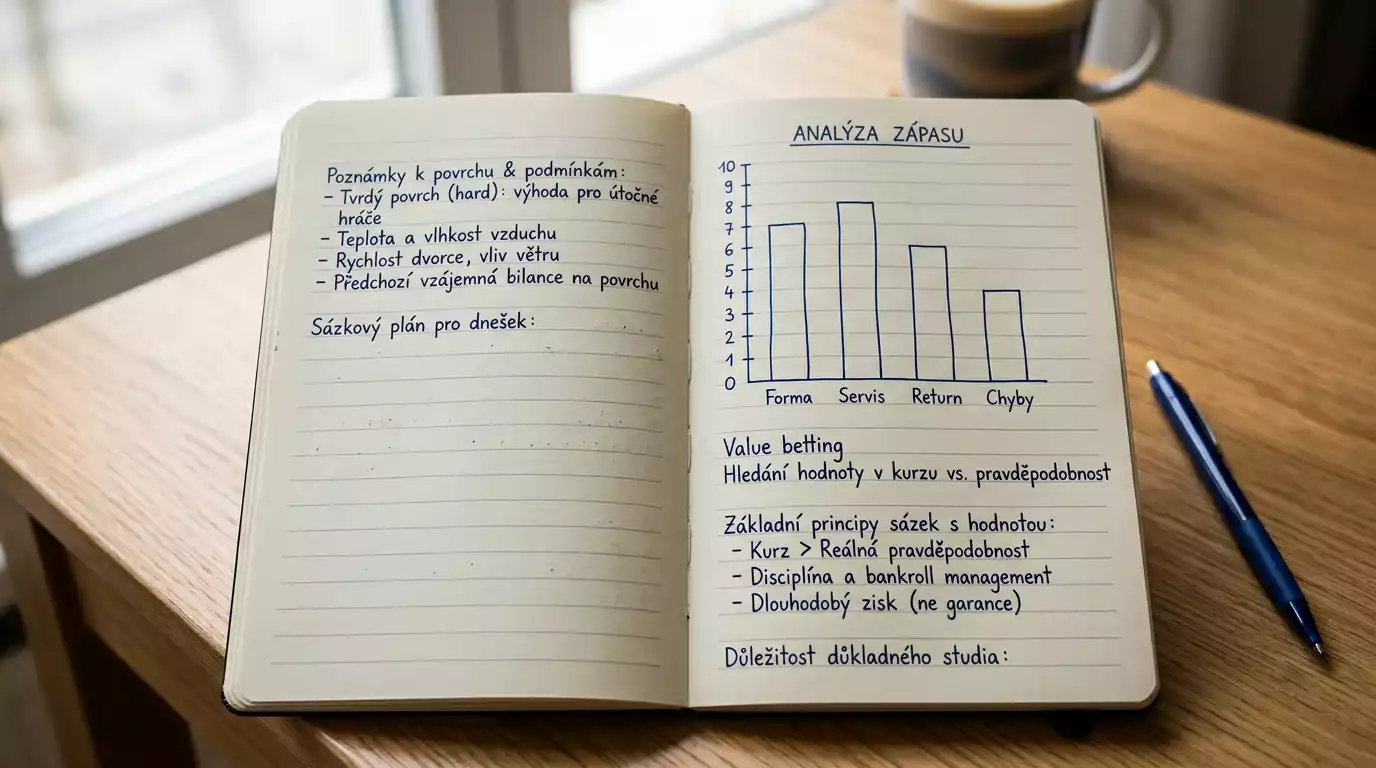 Poznámky k povrchu & podmínkám:
- Tvrdý povrch (hard): výhoda pro útočné
hráče
- Teplota a vlhkost vzduchu
- Rychlost dvorce, vliv větru
- Předchozí vzájemná bilance na povrchu
Sázkový plán pro dnešek:
ANALÝZA ZÁPASU
10
9
8
7
6
5
4
3
2
1
0
Forma Servis Return Chyby
Value betting
Hledání hodnoty v kurzu vs. pravděpodobnost
Základní principy sázek s hodnotou:
- Kurz > Reálná pravděpodobnost
- Disciplína a bankroll management
- Dlouhodobý zisk (ne garance)
Důležitost důkladného studia: